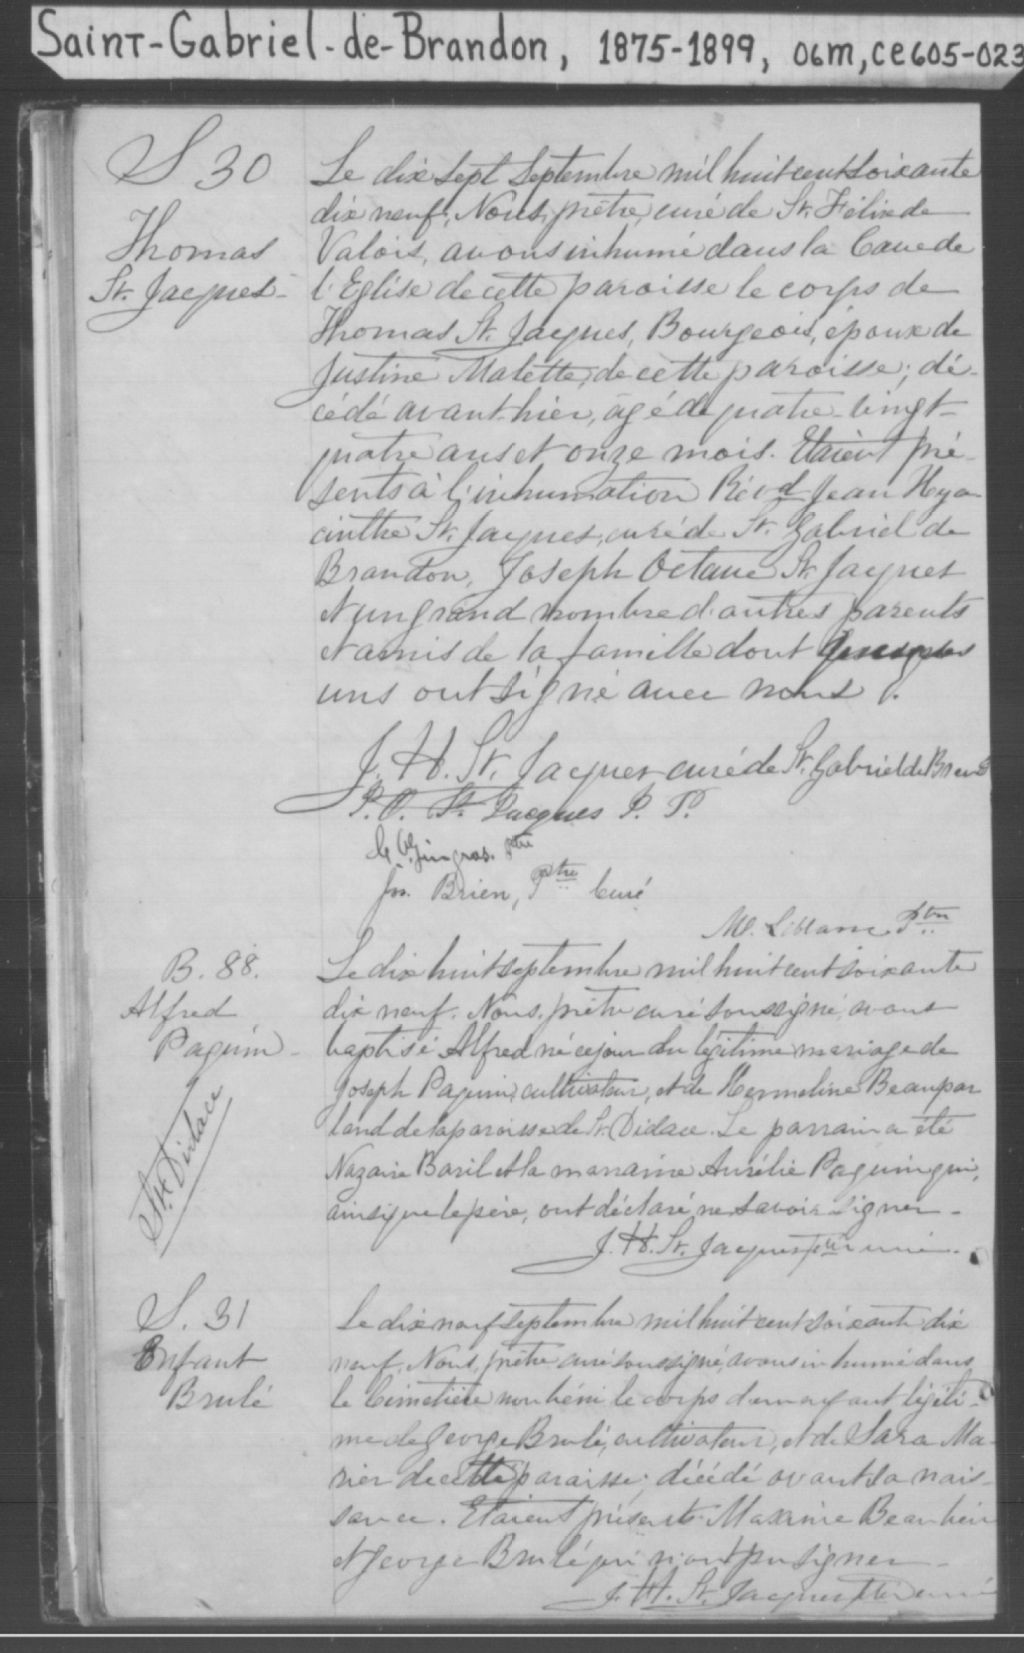 Saint-Gabriel-de-Brandon, 1875-1899, 06m, ce605-023
S 30
Thomas
St. Jacques
Le dix sept Septembre mil huit cent soixante
dix neuf, Nous, prêtre, curé de St. Félix de
Valois, avons inhumé dans la Cave de
l'Eglise de cette paroisse le corps de
Thomas St. Jacques, Bourgeois, époux de
Justine Malette, de cette paroisse; dé-
cédé avant-hier, agé de quatre-vingt-
quatre ans et onze mois. Etaient pré-
sents à l'inhumation Révd Jean Hya-
cinthe St. Jacques, curé de St. Gabriel de
Brandon, Joseph Octave St. Jacques
et un grand nombre d'autres parents
et amis de la famille dont quelques
uns ont signé avec nous.
J. H. St. Jacques curé de St. Gabriel de Brand
J. O. St. Jacques P. P.
Gingras. Ptre
Jos. Brien, Ptre Curé
M. Ptre
B. 88.
Alfred
Paquin
St. Didace
Le dix huit septembre mil huit cent soixante
dix neuf. Nous, prêtre curé soussigné, avons
baptisé Alfred né ce jour du légitime mariage de
Joseph Paquin, cultivateur, et de Hermeline Beaupar
land de la paroisse de St. Didace. Le parrain a été
Nazaire Baril et la marraine Aurélie Paquin qui,
ainsi que le père, ont déclaré ne savoir signer.
J. H. St. Jacques Ptre curé.
S. 31
Enfant
Brulé
Le dix neuf septembre mil huit cent soixante dix
neuf. Nous, prêtre curé soussigné, avons inhumé dans
le Cimetière non béni le corps d'un enfant légiti-
me de George Brulé, cultivateur, et de Sara Ma-
rier de cette paroisse; décédé avant sa nais-
sance. Etaient présents Maxime
et George Brulé qui n'ont pu signer.
J. H. St. Jacques Ptre curé